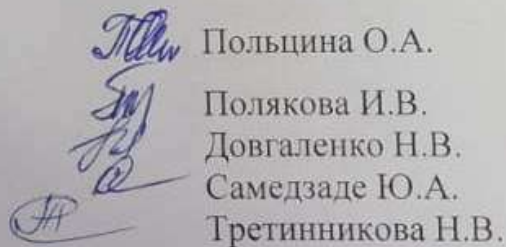 Польцина О.А.
Полякова И.В.
Довгаленко Н.В.
Самедзаде Ю.А.
Третинникова Н.В.